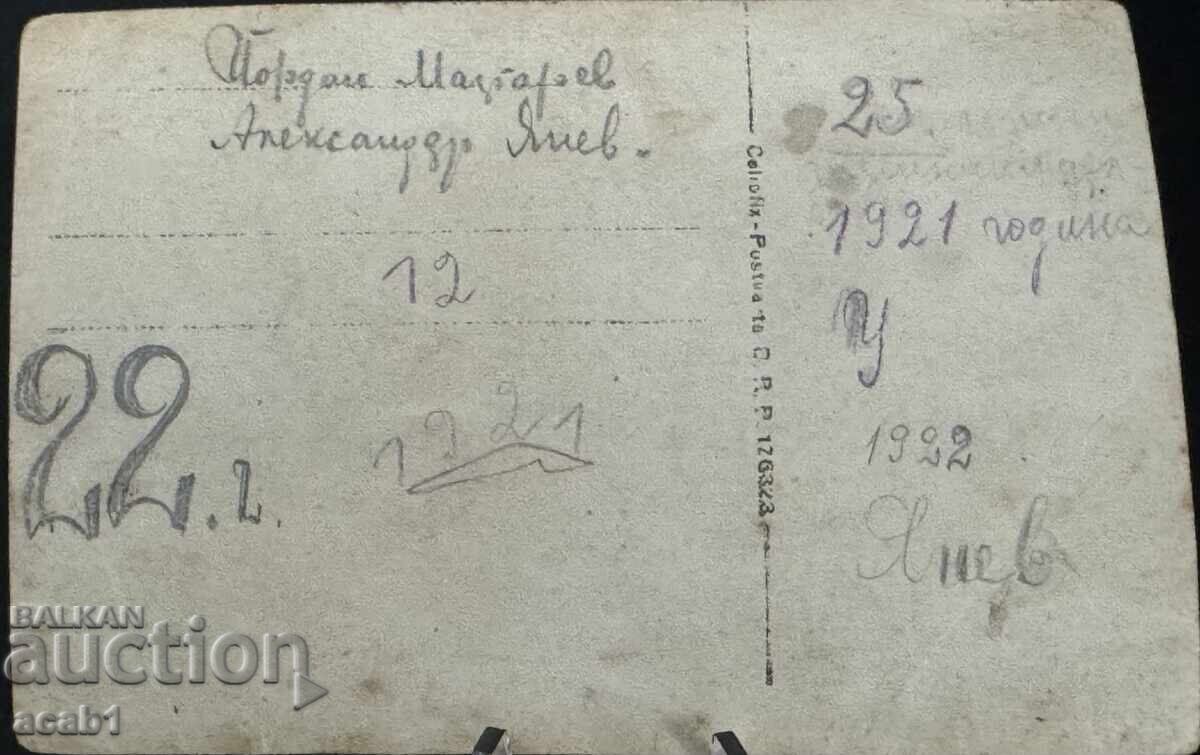 Йордан
Александър Янев.
12
22.г.
1921
Cellofix-Postkarte C. R. P. 176323
25
1921 година
У
1922
Янев
BALKAN
auction
acab1